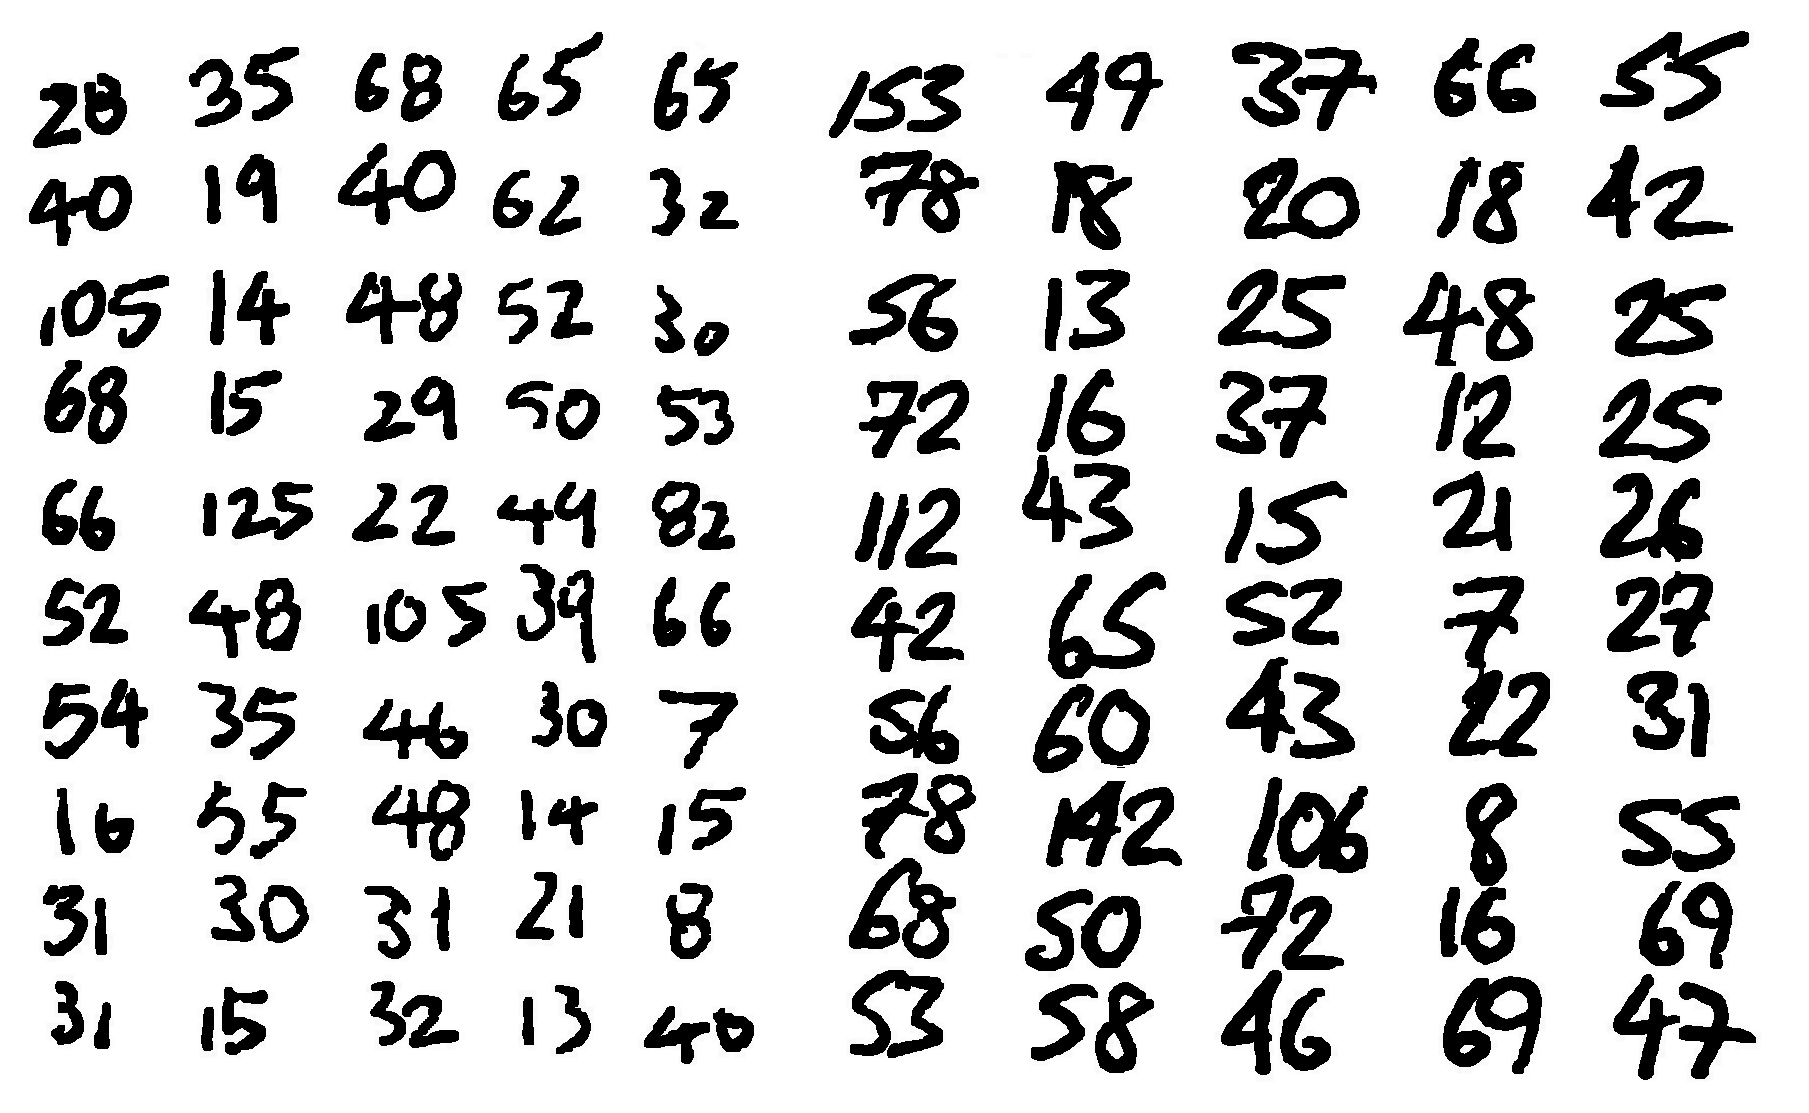 28 35 68 65 65 153 49 37 66 55
40 19 40 62 32 78 18 20 18 42
105 14 48 52 30 56 13 25 48 25
68 15 29 50 53 72 16 37 12 25
66 125 22 49 82 112 43 15 21 26
52 48 105 39 66 42 65 52 7 27
54 35 46 30 7 56 60 43 22 31
16 55 48 14 15 78 142 106 8 55
31 30 31 21 8 68 50 72 16 69
31 15 32 13 40 53 58 46 69 47